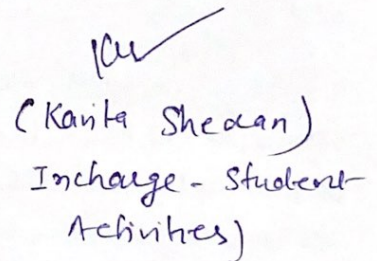 (Kavita Sheoran)
Incharge - Student
Activities)